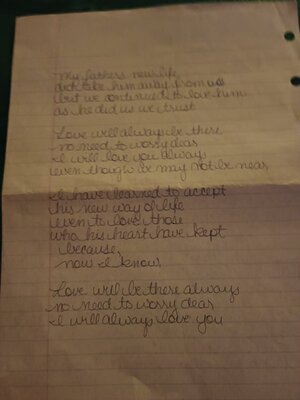 My fathers new life
did take him away from us
but we continued to love him
as he did us we trust
Love will always be there
no need to worry dear
I will love you always
even though we may not be near
I have learned to accept
his new way of life
even to love those
who his heart have kept
because,
now I know,
Love will be there always
no need to worry dear
I will always love you